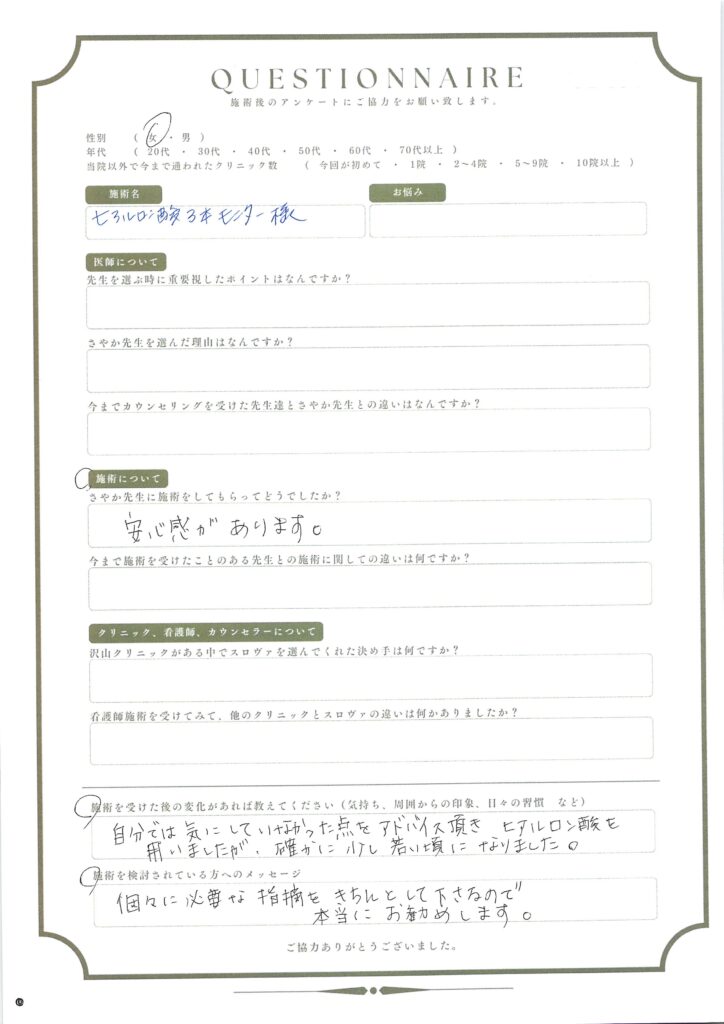 QUESTIONNAIRE
施術後のアンケートにご協力をお願い致します。
性別 ( 女 ・ 男 )
年代 ( 20代 ・ 30代 ・ 40代 ・ 50代 ・ 60代 ・ 70代以上 )
当院以外で今まで通われたクリニック数 ( 今回が初めて ・ 1院 ・ 2〜4院 ・ 5〜9院 ・ 10院以上 )
施術名 お悩み
ヒアルロン酸3本モニター様
医師について
先生を選ぶ時に重要視したポイントはなんですか?
さやか先生を選んだ理由はなんですか?
今までカウンセリングを受けた先生達とさやか先生との違いはなんですか?
施術について
さやか先生に施術をしてもらってどうでしたか?
安心感があります。
今まで施術を受けたことのある先生との施術に関しての違いは何ですか?
クリニック、看護師、カウンセラーについて
沢山クリニックがある中でスロヴァを選んでくれた決め手は何ですか?
看護師施術を受けてみて、他のクリニックとスロヴァの違いは何かありましたか?
施術を受けた後の変化があれば教えてください(気持ち、周囲からの印象、日々の習慣 など)
自分では気にしていなかった点をアドバイス頂き ヒアルロン酸を
用いましたが、確かに少し若い頃になりました。
施術を検討されている方へのメッセージ
個々に必要な指摘をきちんとして下さるので
本当にお勧めします。
ご協力ありがとうございました。